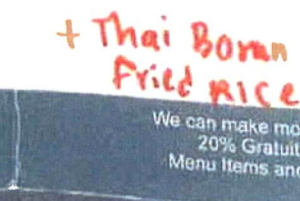 + Thai Boran
Fried Rice
We can make mo
20% Gratuit
Menu Items and